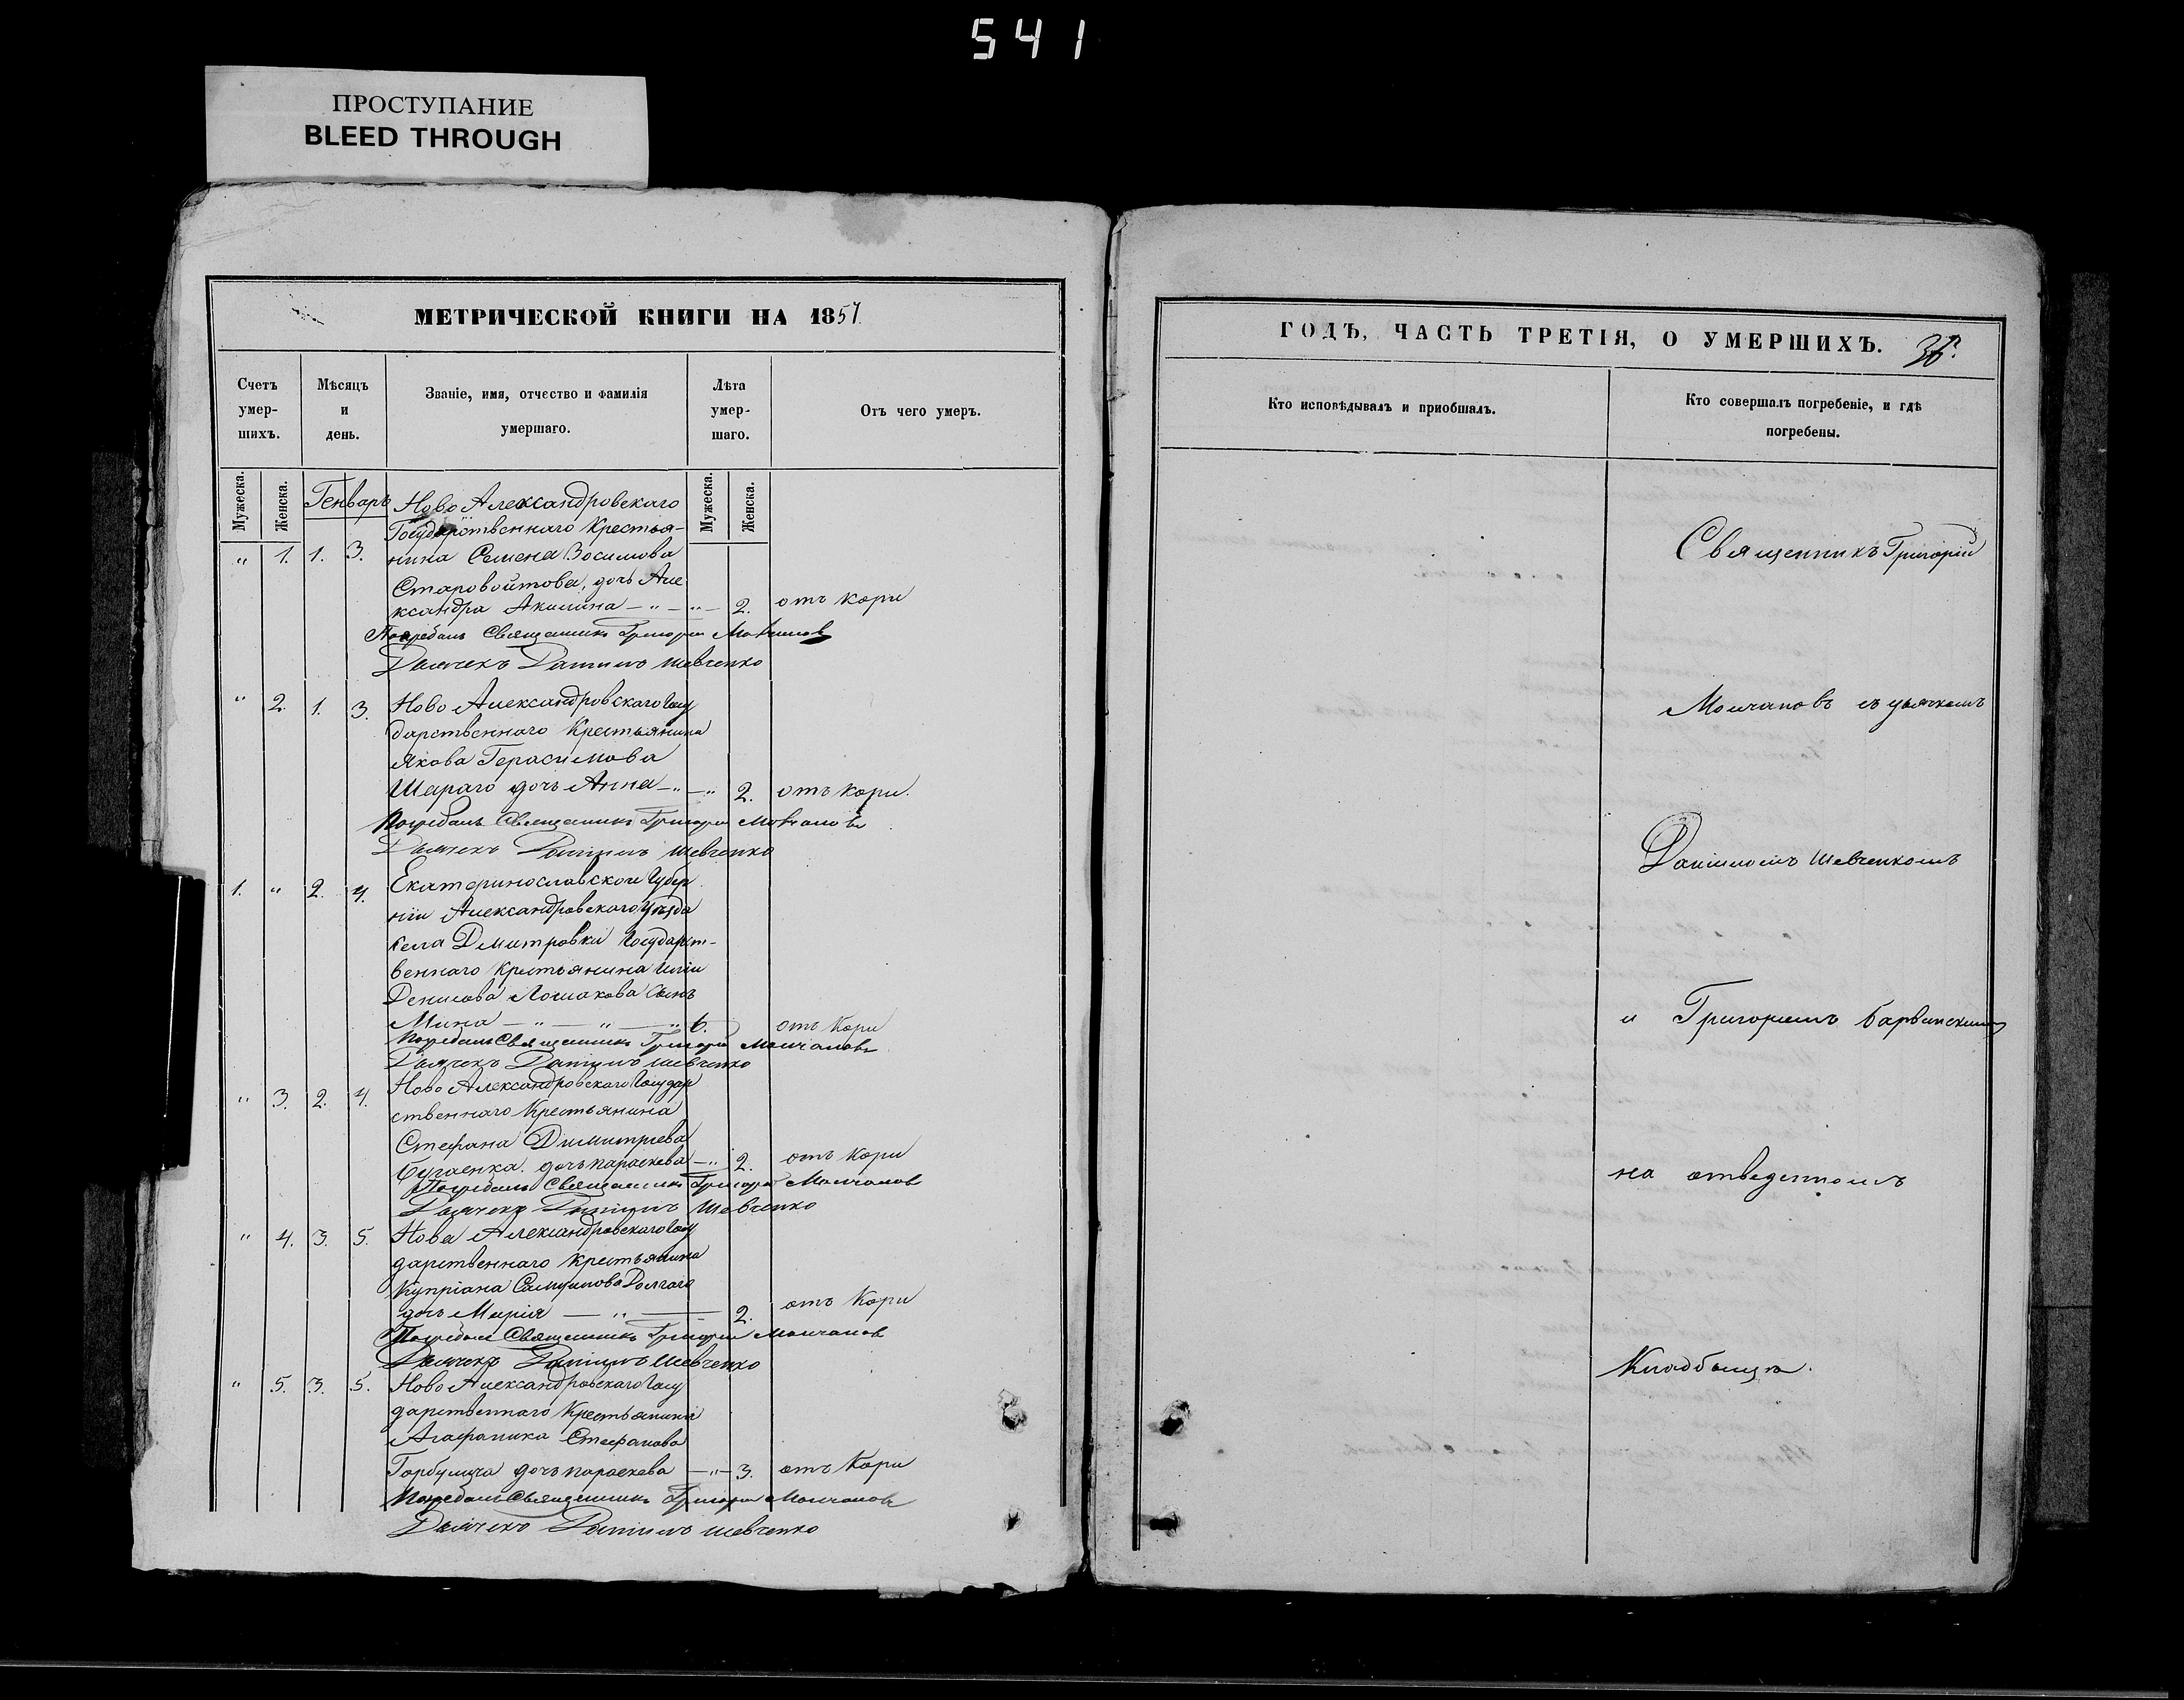 541
ПРОСТУПАНИЕ
BLEED THROUGH
МЕТРИЧЕСКОЙ КНИГИ НА 1857
Счетъ умер-шихъ.
Мѣсяцъ и день.
Званіе, имя, отчество и фамилія умершаго.
Лѣта умер-шаго.
Отъ чего умеръ.
Мужеска.
Женска.
Мужеска.
Женска.
Генварь
Ново Александровскаго
Государственнаго Крестья-
" 1. 1. 3. нина Семена Зосимова
Старовойтова, дочь Але
ксандра Акилина — " — " — 2. отъ кори
Погребалъ Священникъ Григорій Молчановъ
Дьячекъ Даніилъ Шевченко
" 2. 1. 3. Ново Александровскаго Госу
дарственнаго Крестьянина
Якова Герасимова
Шараго дочь Анна — " — " 2. отъ кори.
Погребалъ Священникъ Григорій Молчановъ
Дьячекъ Даніилъ Шевченко
1. " 2. 4. Екатеринославской Губер
ніи Александровскаго Уѣзда
села Дмитровки Государст-
веннаго Крестьянина Иліи
Денисова Лошакова сынъ
Мина — " — " — " 6. отъ Кори
Погребалъ Священникъ Григорій Молчановъ
Дьячекъ Даніилъ Шевченко
" 3. 2. 4. Ново Александровскаго Государ
ственнаго Крестьянина
Стефана Димитріева
Бугаенка. дочь Параскева — " 2. отъ Кори
Погребалъ Священникъ Григорій Молчановъ
Дьячекъ Даніилъ Шевченко
" 4. 3. 5. Ново Александровскаго Госу
дарственнаго Крестьянина
Купріана Долгаго
дочь Марія — " — 2. отъ Кори
Погребалъ Священникъ Григорій Молчановъ
Дьячекъ Даніилъ Шевченко
" 5. 3. 5. Ново Александровскаго Госу
дарственнаго Крестьянина
Стефанова
дочь Параскева — " — 3. отъ Кори
Погребалъ Священникъ Григорій Молчановъ
Дьячекъ Даніилъ Шевченко
ГОДЪ, ЧАСТЬ ТРЕТІЯ, О УМЕРШИХЪ.
Кто исповѣдывалъ и пріобщалъ.
Кто совершалъ погребеніе, и гдѣ погребены.
Священникъ Григорій
Молчановъ съ дьячкомъ
Даніиломъ Шевченкомъ
и Григоріемъ Барвинскимъ
на отведенномъ
Кладбищѣ.